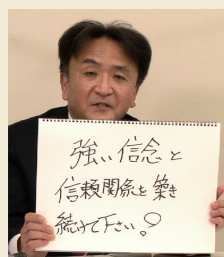 強い信念と
信頼関係を築き
続けて下さい!